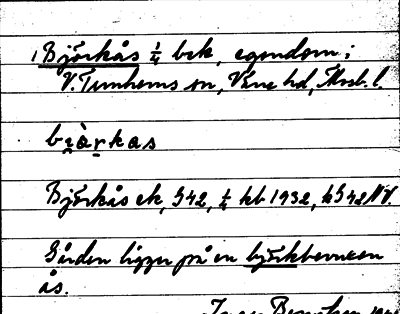 Björkås 1/4 bek, egendom;
V. Tunhems sn, Väne hd, Älvsb. l.
bi̯àr̥kas
Björkås ek, G42, 1/4 kb 1932, k G42 NV.
Gården ligger på en björkbevuxen
ås.